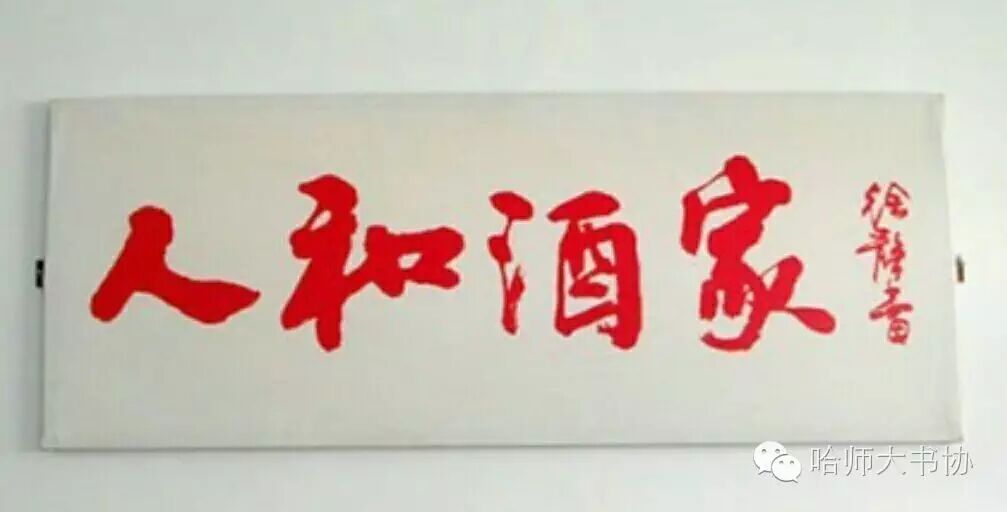 人和酒家
徐静
哈师大书协